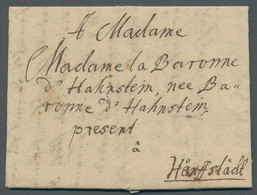 A Madame
Madame la Baronne
d'Hahnstein, nee Ba-
ronne d'Hahnstein,
present
à